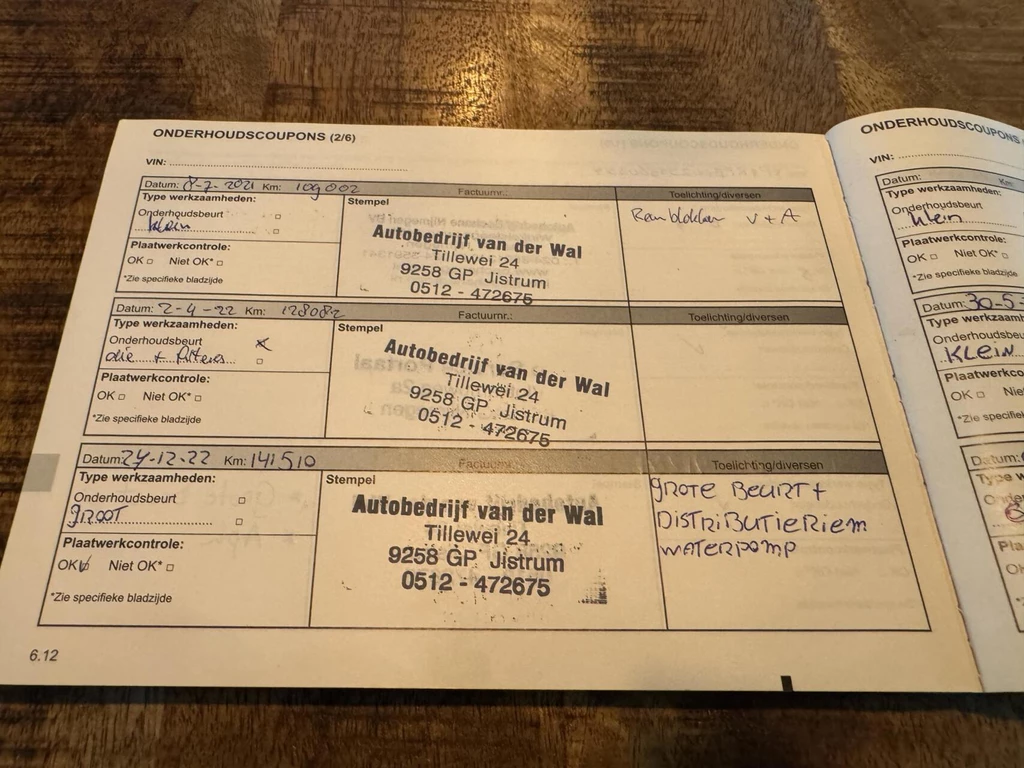 ONDERHOUDSCOUPONS (2/6)
VIN:
Datum: 8-7-2021 Km: 109002 Factuurnr.: Toelichting/diversen
Type werkzaamheden:
Onderhoudsbeurt
klein
Plaatwerkcontrole:
OK Niet OK*
*Zie specifieke bladzijde
Stempel
Autobedrijf van der Wal
Tillewei 24
9258 GP Jistrum
0512 - 472675
Remblokken V + A
Datum: 2-4-22 Km: 128082 Factuurnr.: Toelichting/diversen
Type werkzaamheden:
Onderhoudsbeurt
olie + filters
Plaatwerkcontrole:
OK Niet OK*
*Zie specifieke bladzijde
Stempel
Autobedrijf van der Wal
Tillewei 24
9258 GP Jistrum
0512 - 472675
Datum: 27-12-22 Km: 141510 Factuurnr. Toelichting/diversen
Type werkzaamheden:
Onderhoudsbeurt
GROOT
Plaatwerkcontrole:
OK Niet OK*
*Zie specifieke bladzijde
Stempel
Autobedrijf van der Wal
Tillewei 24
9258 GP Jistrum
0512 - 472675
GROTE BEURT +
DISTRIBUTIERIEM
WATERPOMP
6.12
ONDERHOUDSCOUPONS
VIN:
Datum: Km:
Type werkzaamheden:
Onderhoudsbeurt
klein
Plaatwerkcontrole:
OK Niet OK*
*Zie specifieke bladzijde
Datum: 30-5-
Type werkzaamh
Onderhoudsbeu
KLEIN
Plaatwerkcontro
OK Nie
*Zie specifie
Datum:
Type w
Onder
Pla